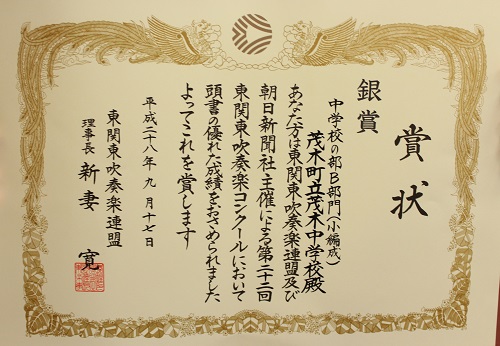 賞状
銀賞
中学校の部B部門(小編成)
茂木町立茂木中学校殿
あなた方は東関東吹奏楽連盟及び
朝日新聞社主催による第二十二回
東関東吹奏楽コンクールにおいて
頭書の優れた成績をおさめられました
よってこれを賞します
平成二十八年九月十七日
東関東吹奏楽連盟
理事長 新妻 寛